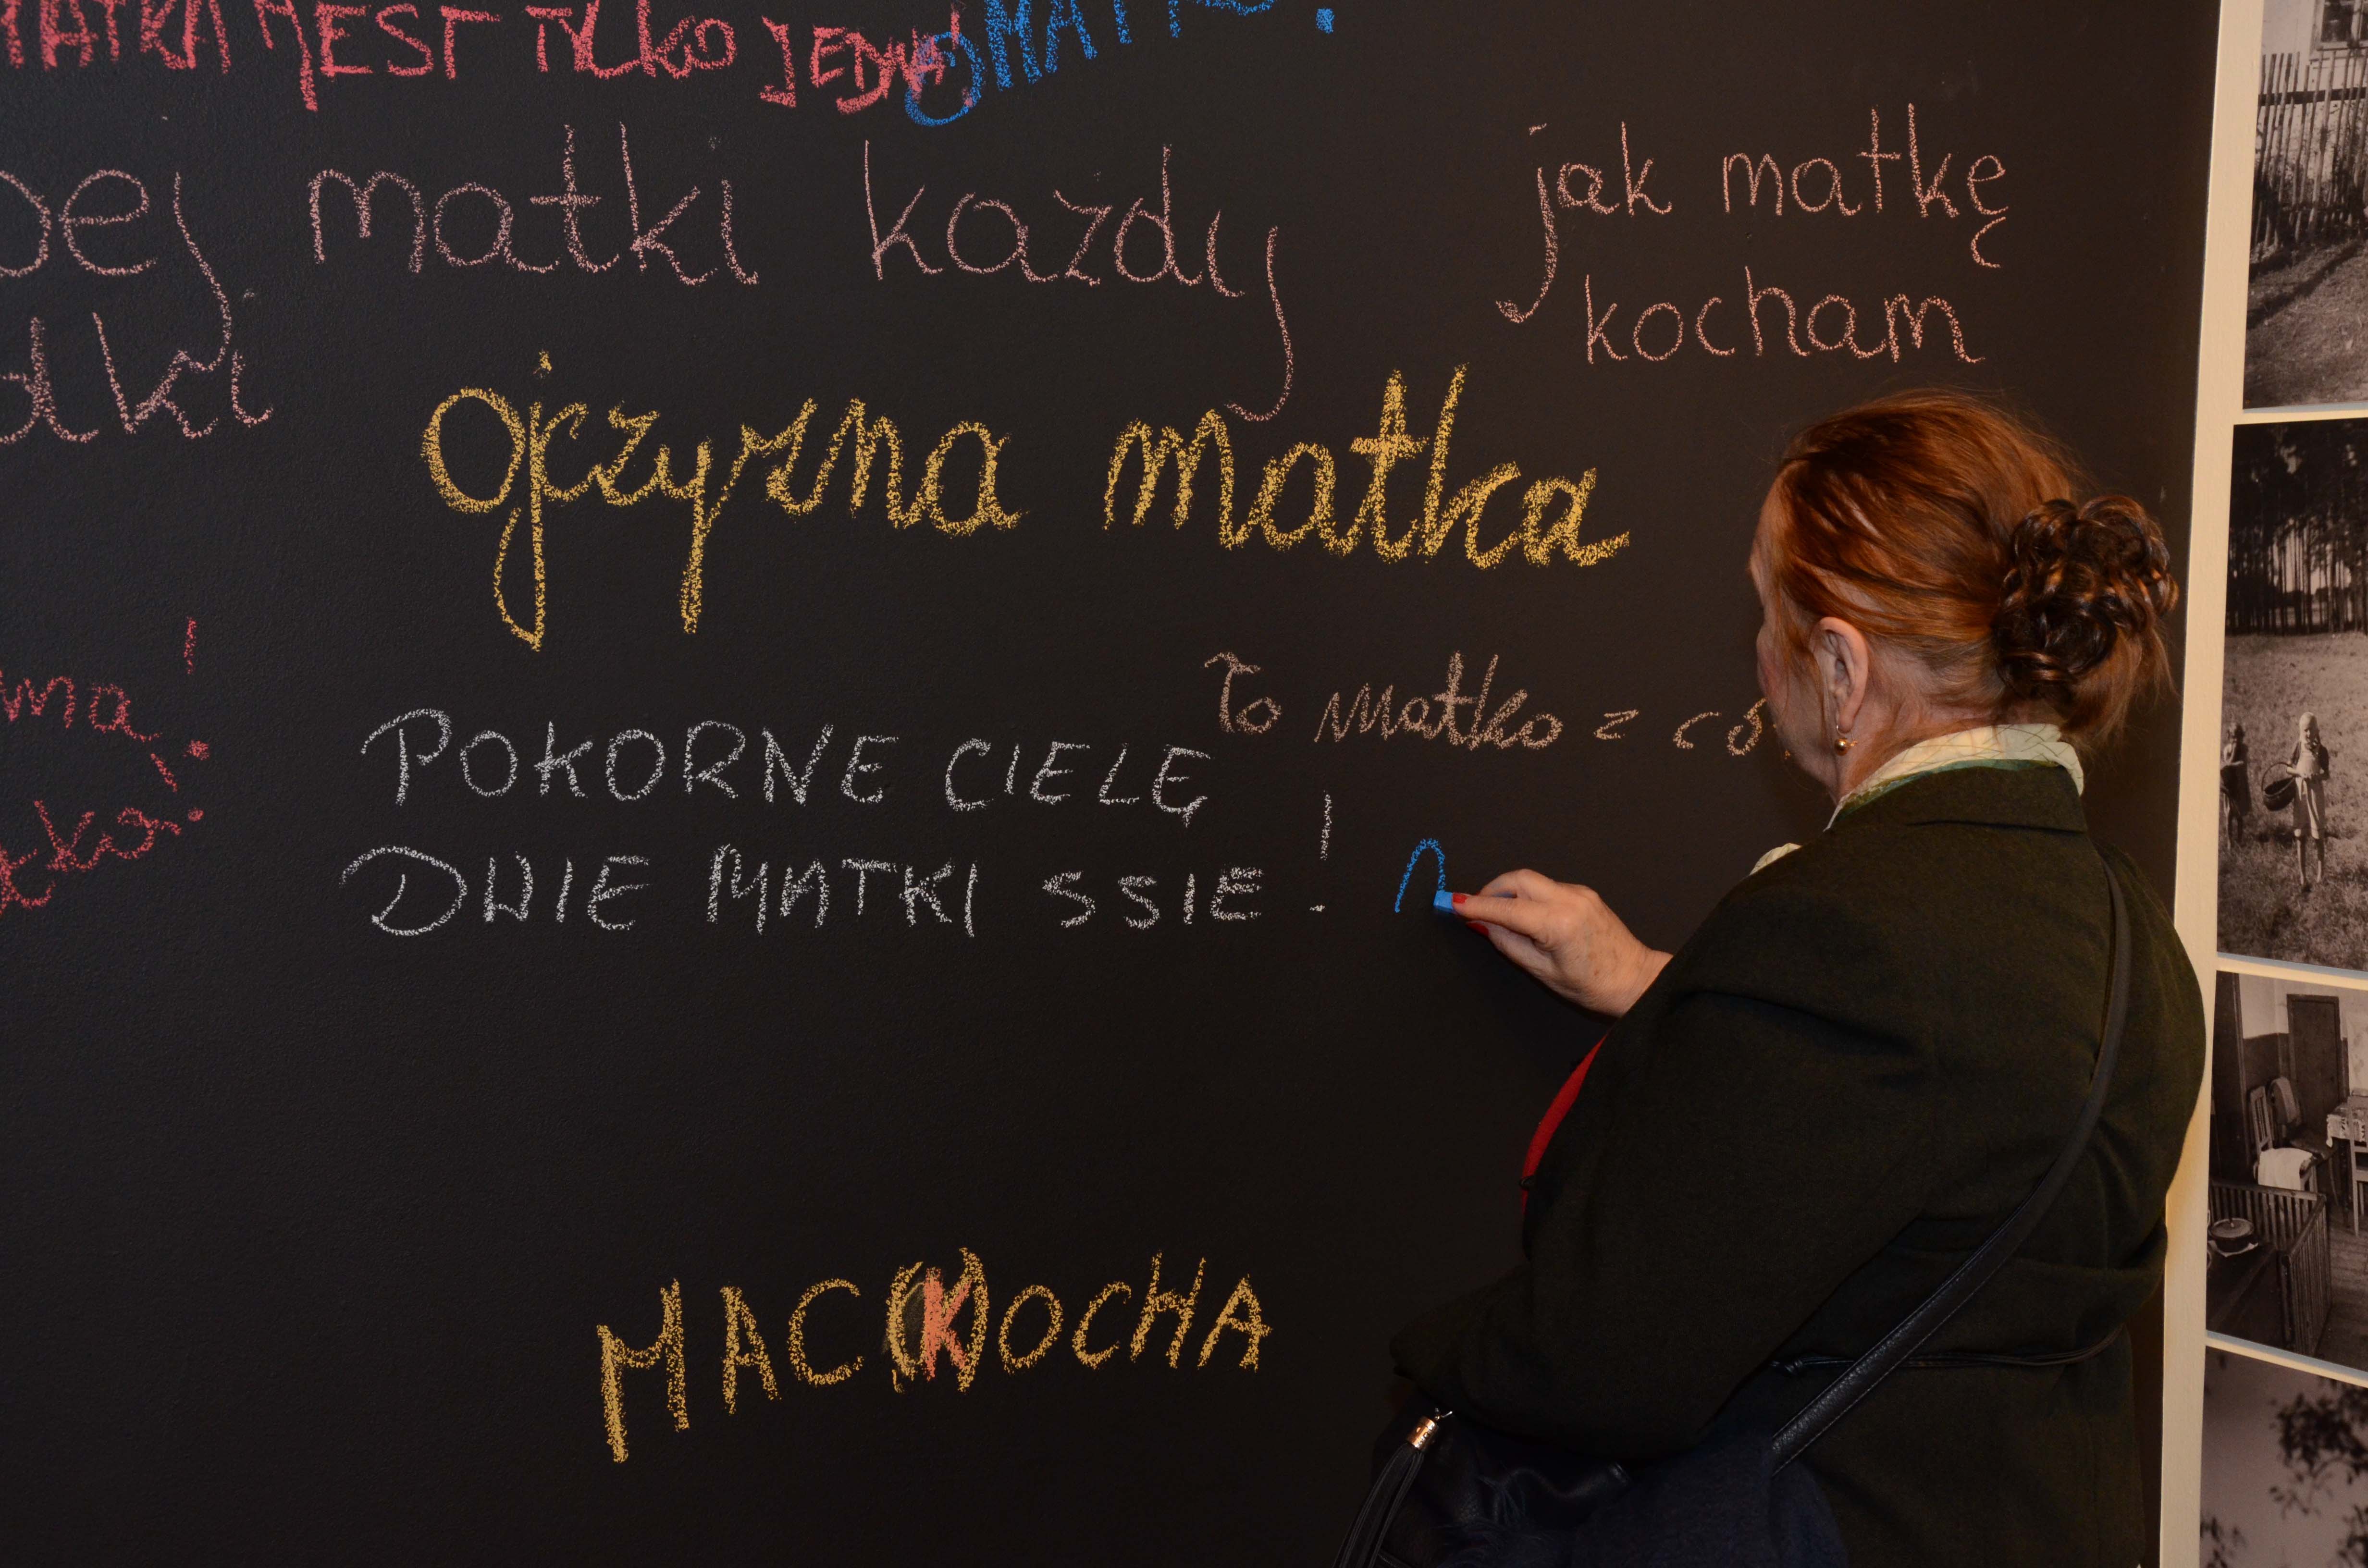 MATKA JEST TYLKO JEDNA
O MATKO!
matki każdy
jak matkę
kocham
ojczyzna matka
To matko z có
POKORNE CIELĘ
DWIE MATKI SSIE!
MAC(K)OCHA